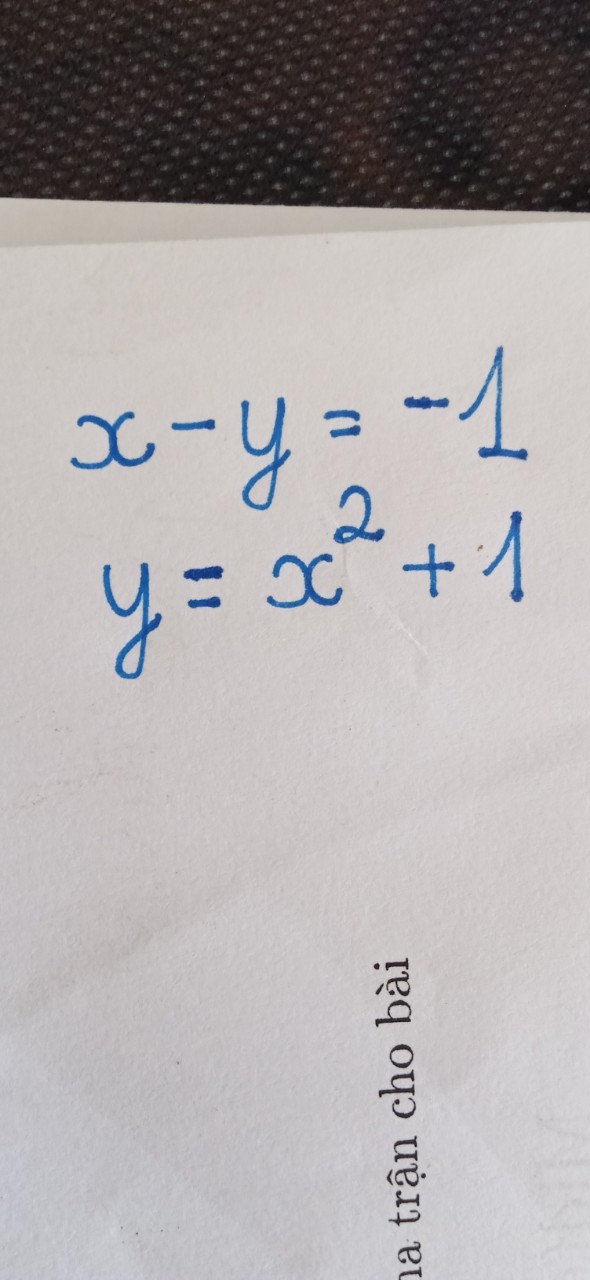 x - y = -1
y = x² + 1
trận cho bài